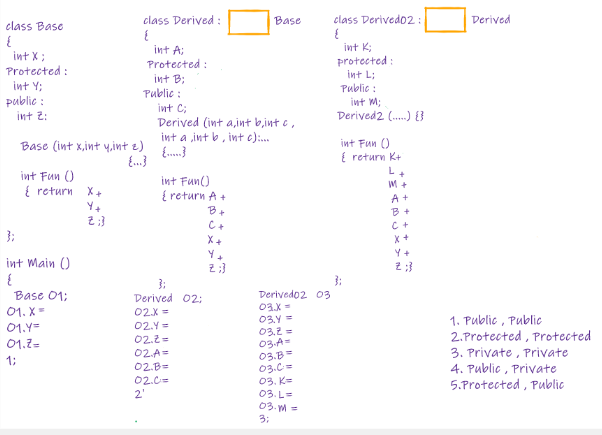 class Base
{
int X ;
Protected :
int Y;
public :
int Z:
Base (int x,int y,int z)
{...}
int Fun ()
{ return X +
Y +
Z ;}
};
int Main ()
{
Base O1;
O1. X =
O1.Y=
O1.Z=
1;
class Derived : Base
{
int A;
Protected :
int B;
Public :
int C;
Derived (int a,int b,int c ,
int a ,int b , int c):...
{.....}
int Fun()
{ return A +
B +
C +
X +
Y +
Z ;}
};
Derived O2;
O2.X =
O2.Y =
O2.Z =
O2.A=
O2.B=
O2.C=
2'
.
class Derived02 : Derived
{
int K;
protected :
int L;
Public :
int M;
Derived2 (.....) {}
int Fun ()
{ return K+
L +
M +
A +
B +
C +
X +
Y +
Z ;}
};
Derived02 O3
O3.X =
O3.Y =
O3.Z =
O3.A=
O3.B=
O3.C=
O3. K=
O3.L=
O3.M =
3;
1. Public , Public
2.Protected , Protected
3. Private , Private
4. Public , Private
5.Protected , Public